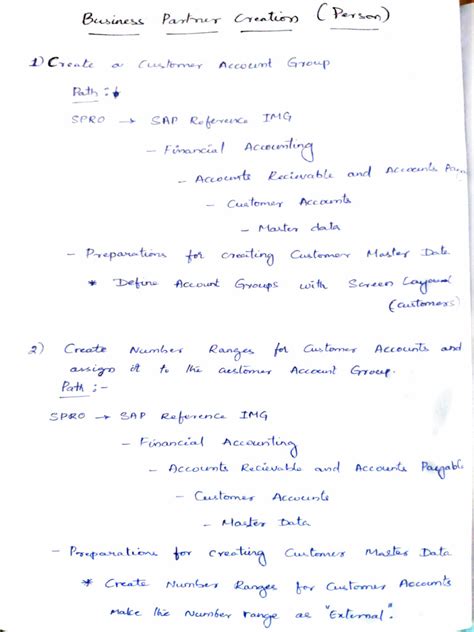 Business Partner Creation (Person)
1) Create a Customer Account Group
Path :-
SPRO → SAP Reference IMG
- Financial Accounting
- Accounts Recievable and Accounts
- Customer Accounts
- Master data
- Preparations for creating Customer Master Date
* Define Account Groups with Screen Layout
(customers)
2) Create Number Ranges for Customer Accounts and
assign it to the customer Account Group.
Path :-
SPRO → SAP Reference IMG
- Financial Accounting
- Accounts Recievable and Accounts Payable
- Customer Accounts
- Master Data
- Preparations for creating Customer Master Data
* Create Number Ranges for Customer Accounts
Make the Number range as "External".